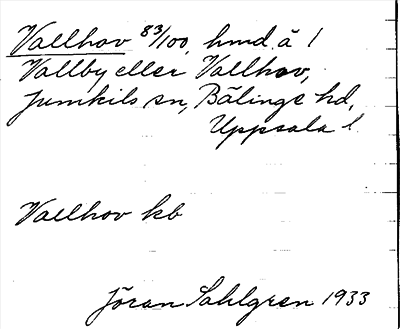 Vallhov 83/100, hmd å 1
Vallby eller Vallhov,
Jumkils sn, Bälinge hd,
Uppsala l.
Vallhov kb
Jöran Sahlgren 1933